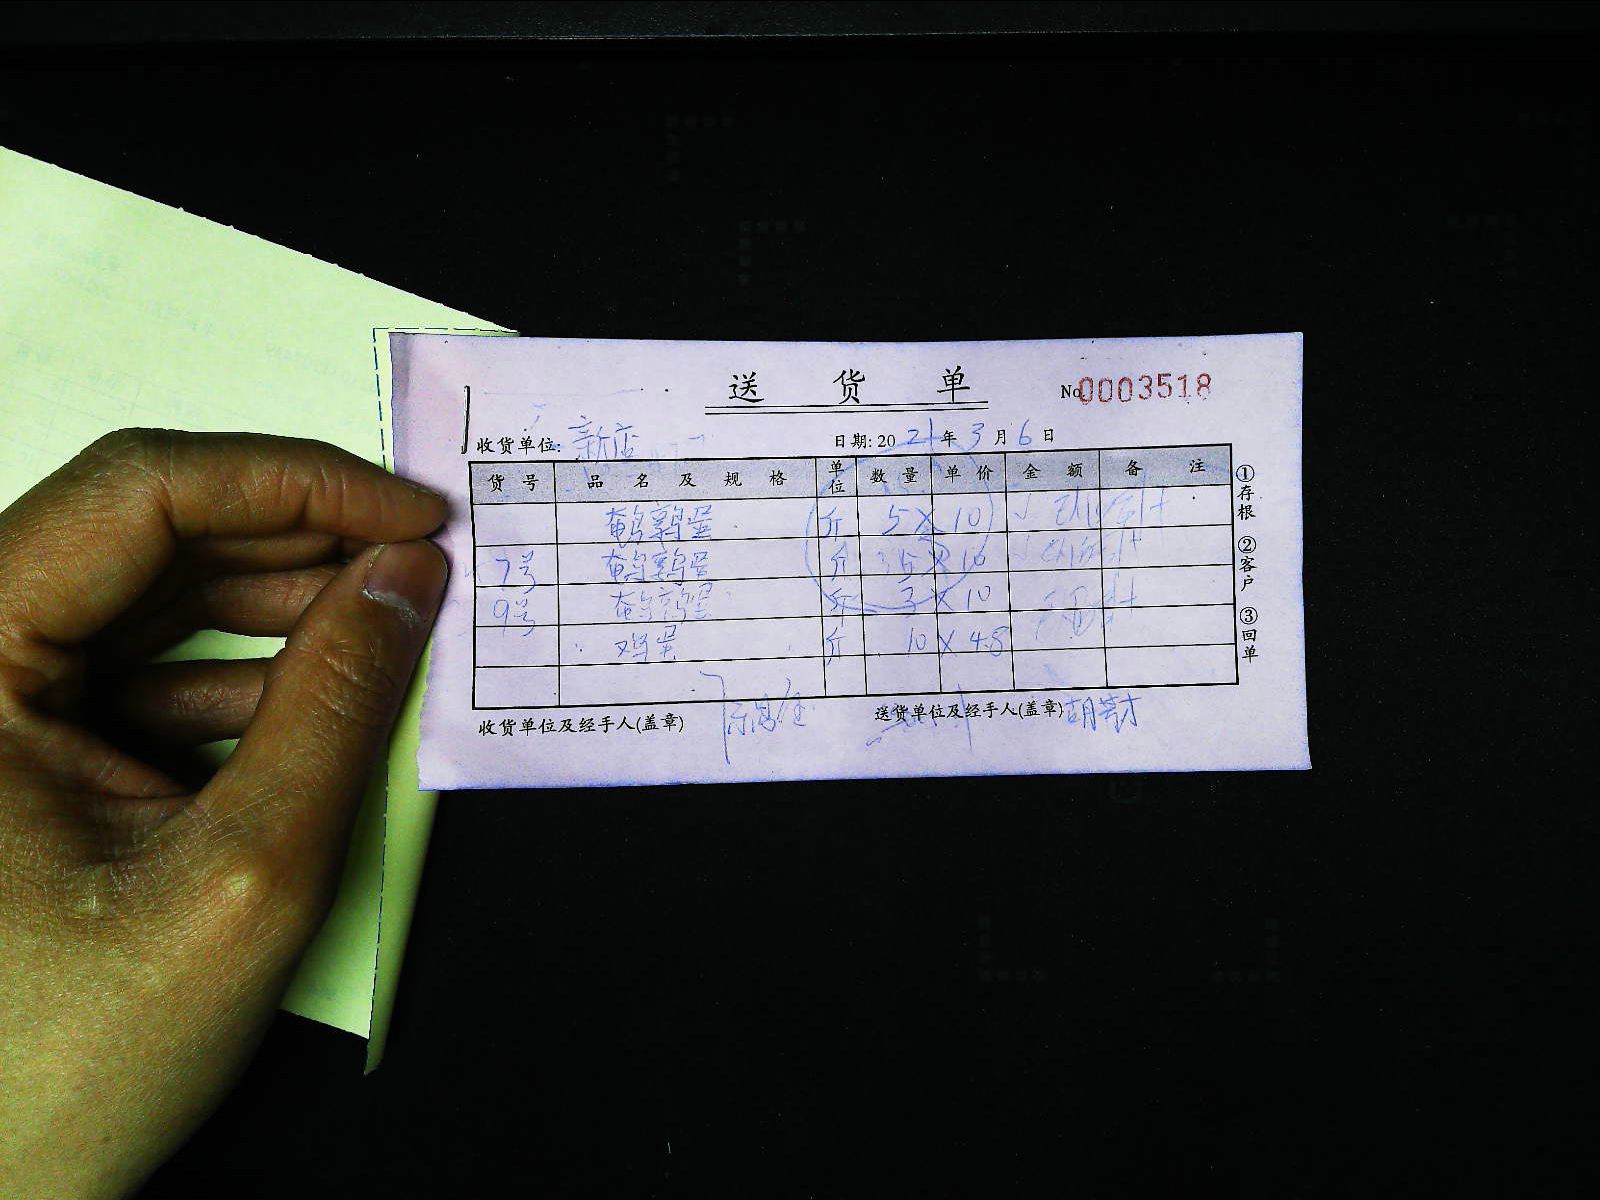 送 货 单 No 0003518
收货单位: 新店 日期: 2021年3月6日
货号 品名及规格 单位 数量 单价 金额 备注
鹌鹑蛋 斤 5×10
7号 鹌鹑蛋 斤 ×10
9号 鹌鹑蛋 斤 3×10
鸡蛋 斤 10×4.8
收货单位及经手人(盖章) 送货单位及经手人(盖章)
①存根 ②客户 ③回单